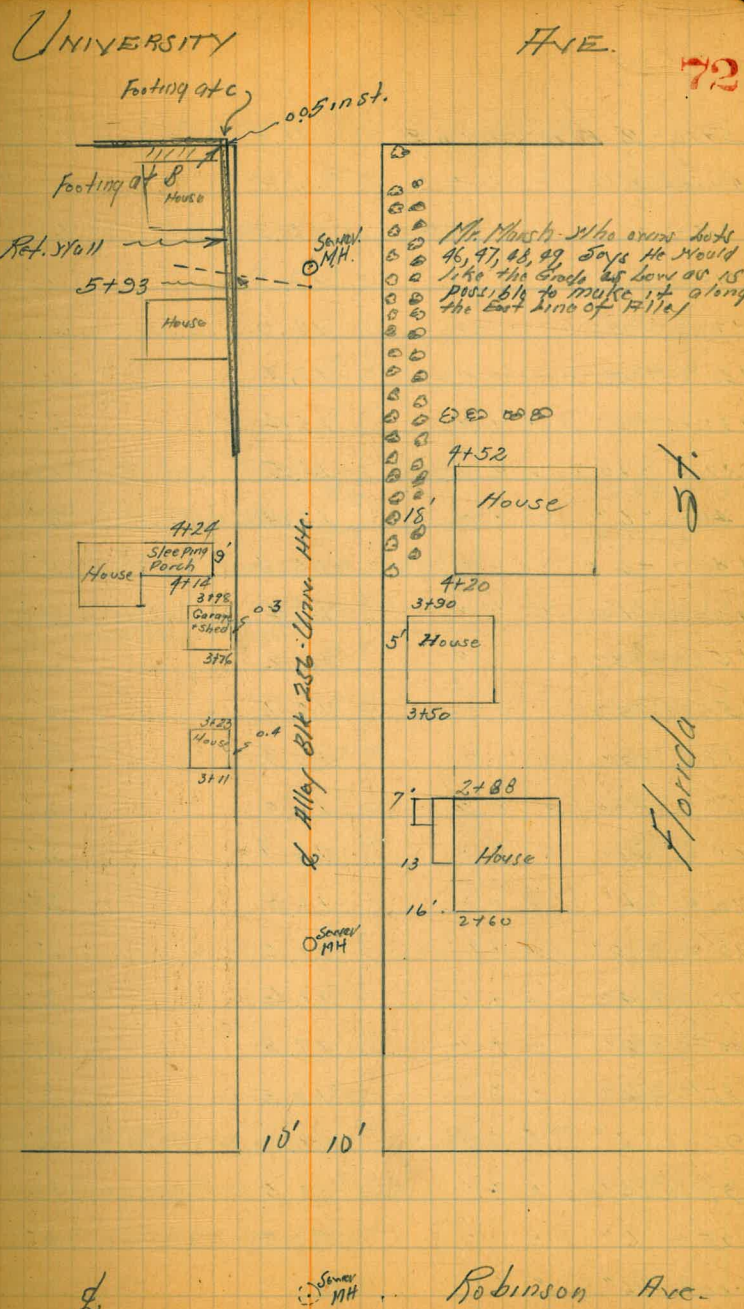 UNIVERSITY AVE.
72
Footing at C
0.05 in st.
Footing at B
House
Ret. Wall
Sewer
M.H.
5+93
House
Mr. Marsh who owns Lots
46, 47, 48, 49, Says He Would
like the Grade as Low as is
possible to make it along
the East Line of Alley
4+52
House
18'
4+20
St.
Florida
4+24
Sleeping
Porch
9'
House
4+14
3+98
Garage
+ Shed
0.3
3+76
3+90
5'
House
3+50
3+23
House
0.4
3+11
℄ Alley Blk 256 - Univ. Hts.
2+88
7'
13
House
16'
2+60
Sewer
MH
10' 10'
℄
Sewer
MH
Robinson Ave.